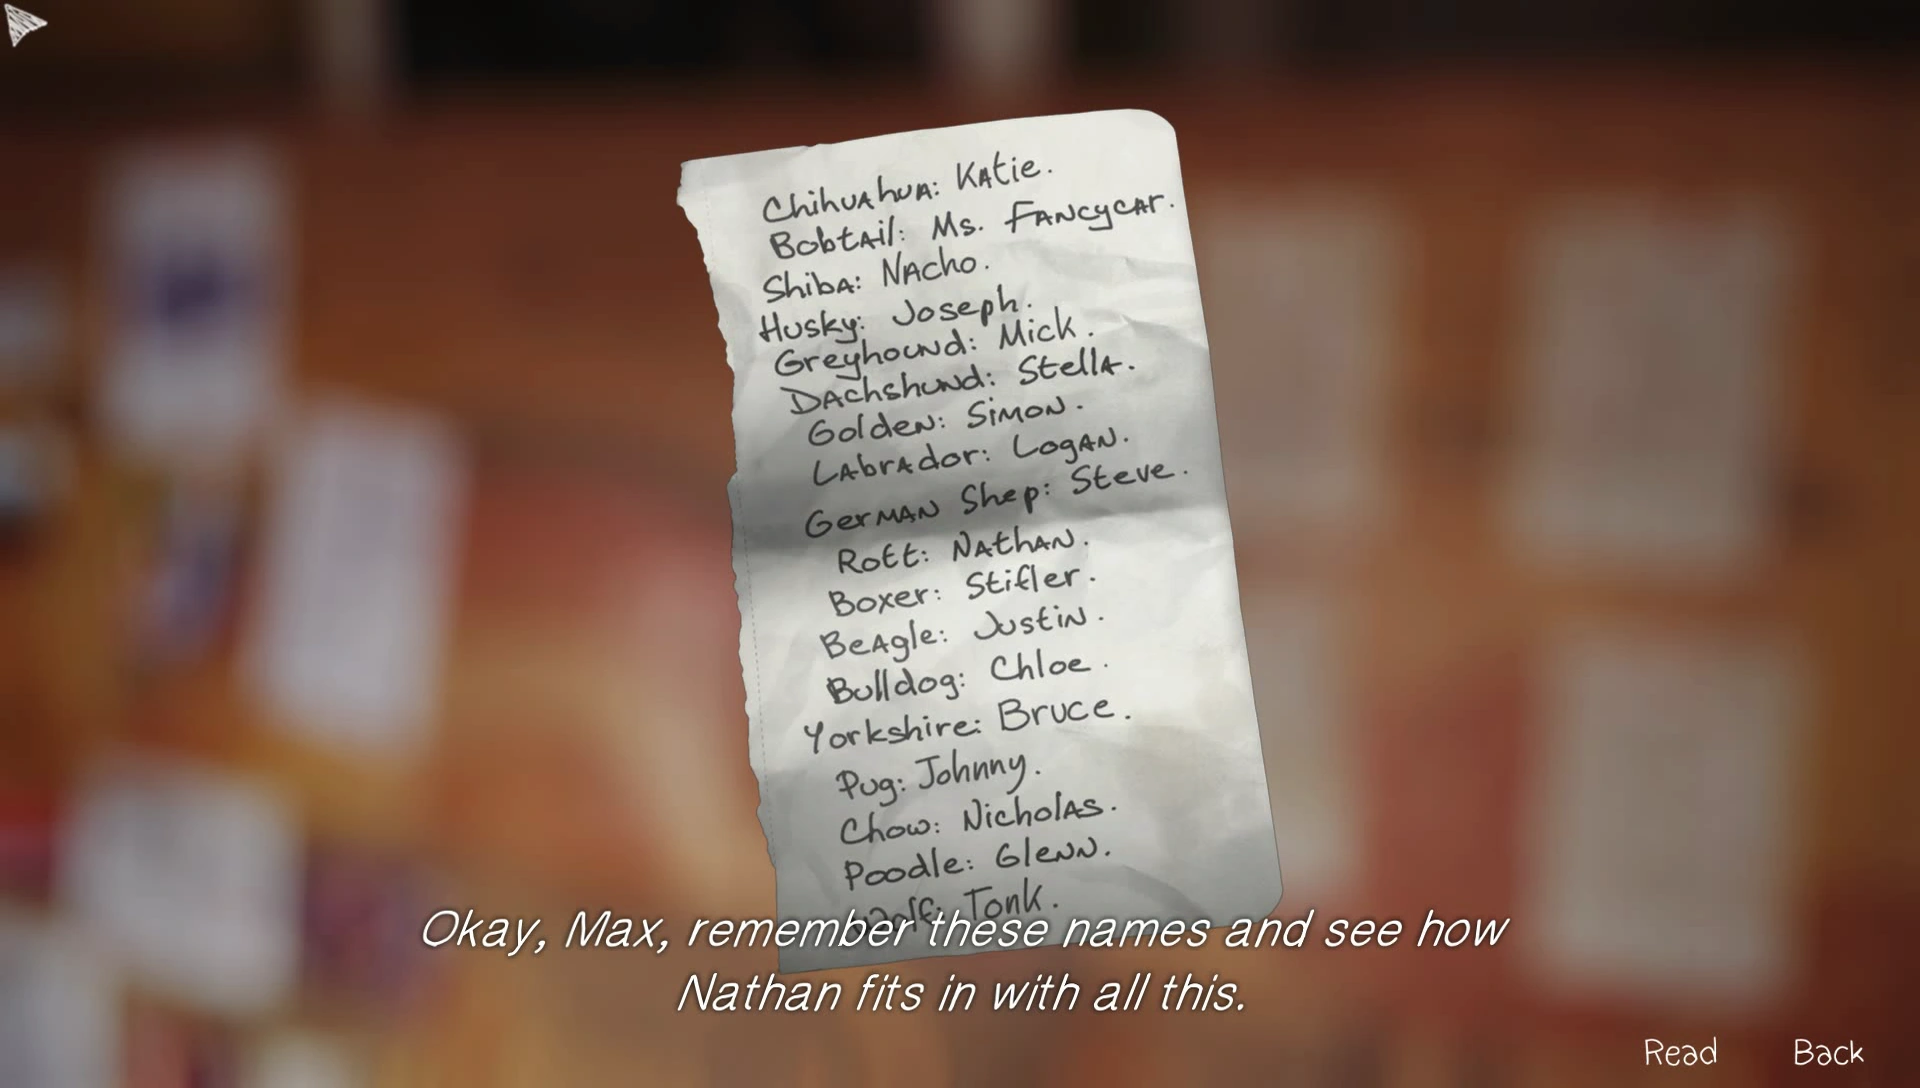 Chihuahua: Katie.
Bobtail: Ms. Fancycar.
Shiba: Nacho.
Husky: Joseph.
Greyhound: Mick.
Dachshund: Stella.
Golden: Simon.
Labrador: Logan.
German Shep: Steve.
Rott: Nathan.
Boxer: Stifler.
Beagle: Justin.
Bulldog: Chloe.
Yorkshire: Bruce.
Pug: Johnny.
Chow: Nicholas.
Poodle: Glenn.
Tonk.
Okay, Max, remember these names and see how
Nathan fits in with all this.
Read Back